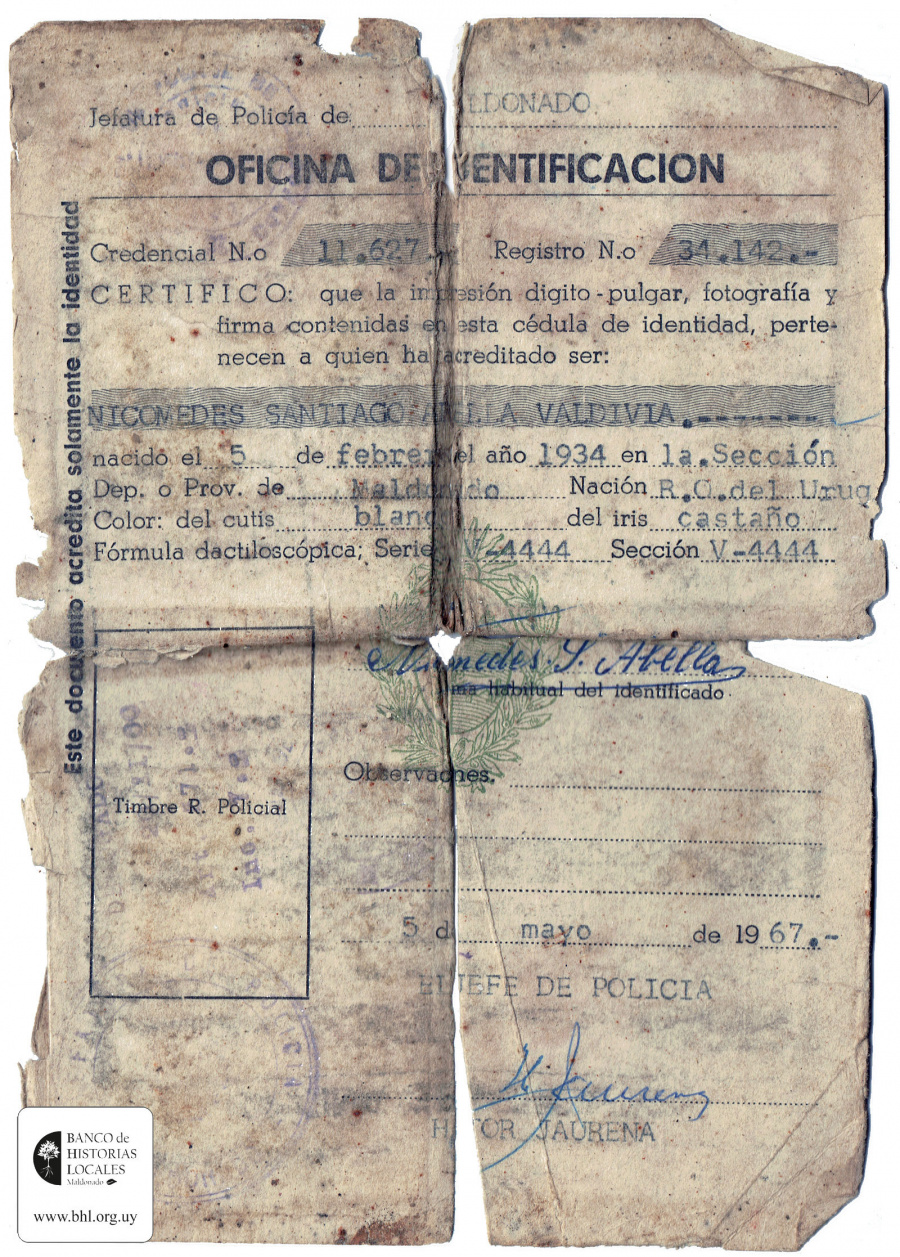 Jefatura de Policía de LDONADO
OFICINA DE IDENTIFICACION
Credencial N.o 11.627.- Registro N.o 34.142.-
CERTIFICO: que la impresión digito-pulgar, fotografía y
firma contenidas en esta cédula de identidad, perte-
necen a quien ha acreditado ser:
NICOMEDES SANTIAGO A LLA VALDIVIA.-------
nacido el 5 de febrer el año 1934 en 1a.Sección
Dep. o Prov. de Maldonado Nación R.O.del Urug
Color: del cutis blanc del iris castaño
Fórmula dactiloscópica; Serie V-4444 Sección V-4444
Este documento acredita solamente la identidad
Nicomedes S. Abella
ma habitual del identificado
Timbre R. Policial
Observaciones.
5 de mayo de 1967.-
EL JEFE DE POLICIA
H. Jaurena
H TOR JAURENA
BANCO de
HISTORIAS
LOCALES
Maldonado
www.bhl.org.uy